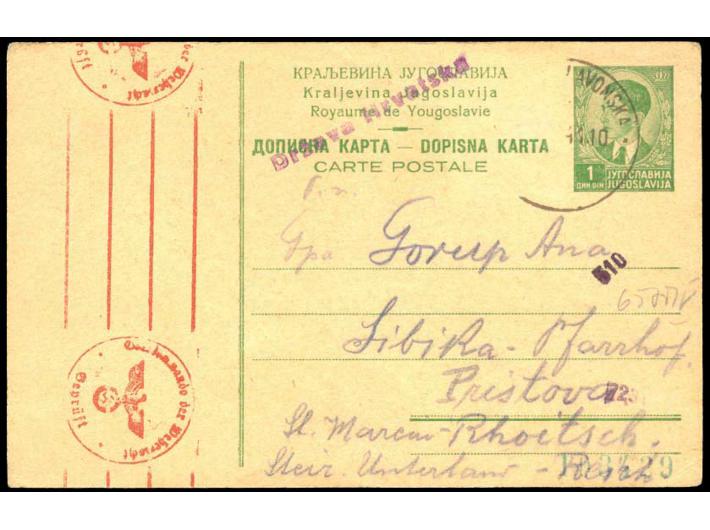 КРАЉЕВИНА ЈУГОСЛАВИЈА
Kraljevina Jugoslavija
Royaume de Yougoslavie
Država Hrvatska
ДОПИСНА КАРТА — DOPISNA KARTA
CARTE POSTALE
AVONSKA
10
1
ДИН DIN
ЈУГОСЛАВИЈА
JUGOSLAVIJA
Gpa Gorup Ana
510
Sibika - Pfarrhof
Pristova
St. Marein - Rhoitsch.
Steir. Unterland - Reich
29
Geprüft
Oberkommando der Wehrmacht
Geprüft
der Wehrmacht